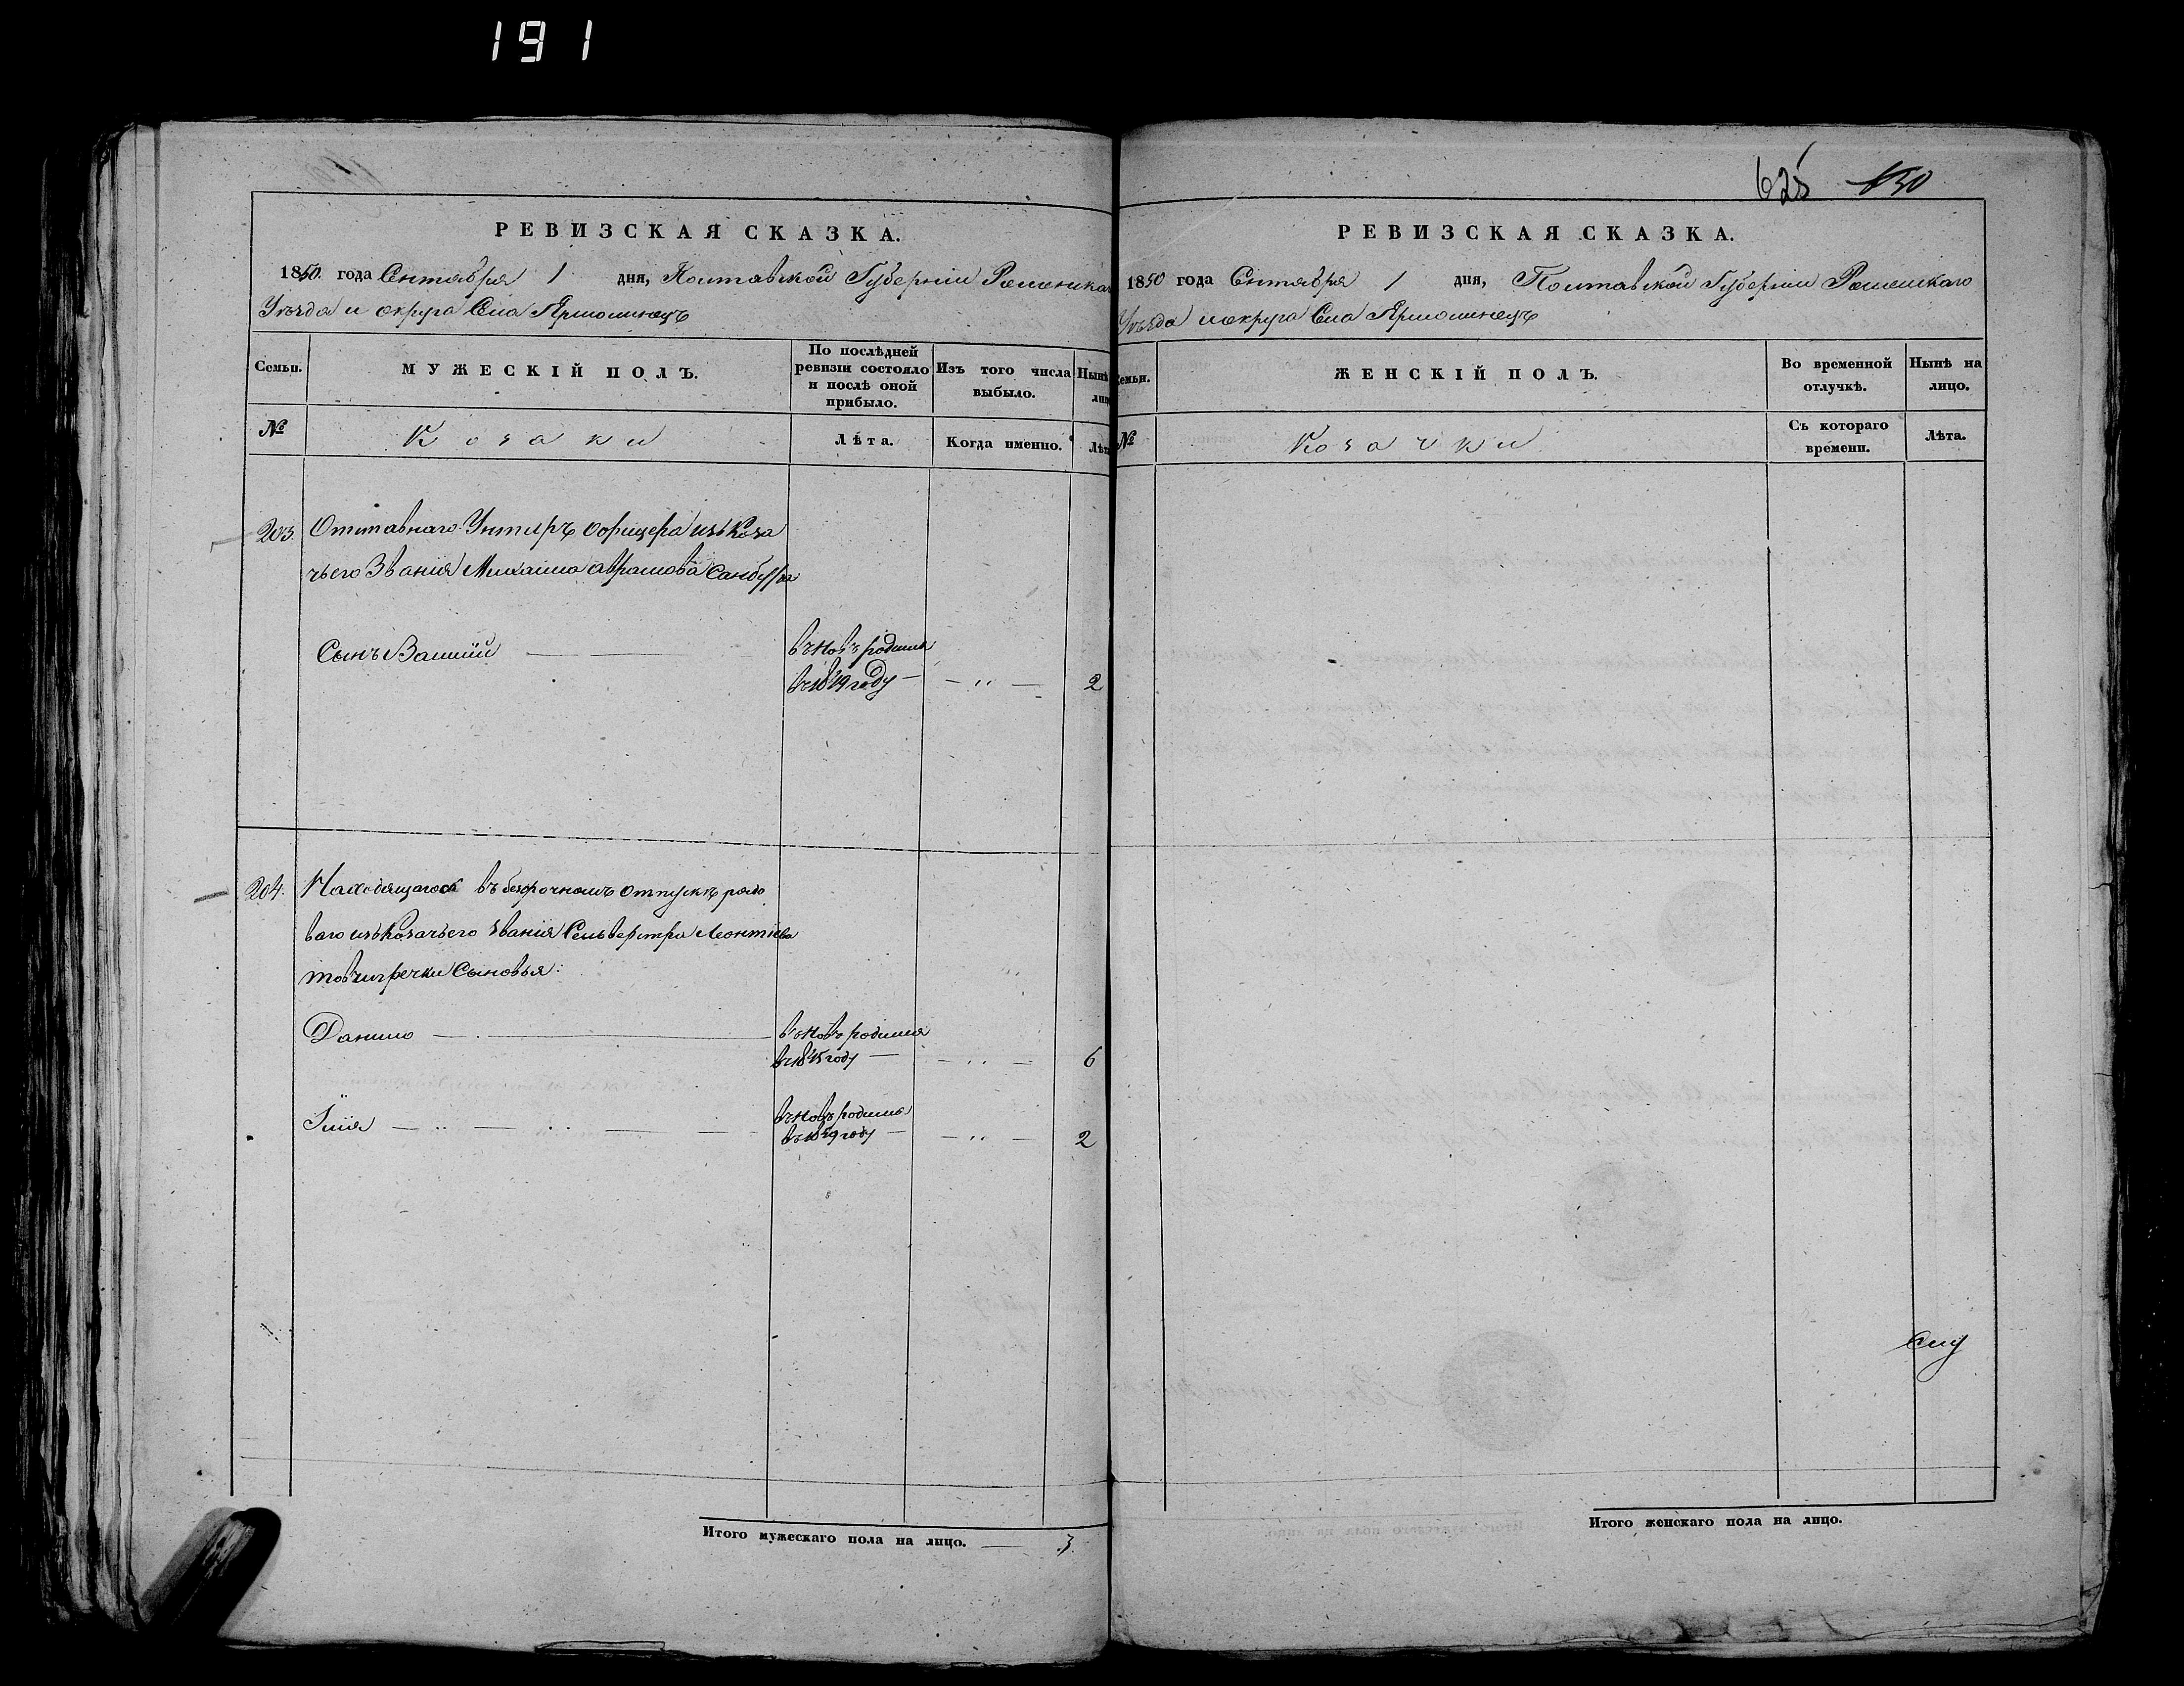 191
РЕВИЗСКАЯ СКАЗКА.
1850. года Сентября 1 дня, Полтавской Губерніи Роменскаго
Уѣзда и округа Села Ярмолинецъ
Семьи.
МУЖЕСКІЙ ПОЛЪ.
По послѣдней ревизіи состояло и послѣ оной прибыло.
Изъ того числа выбыло.
Нынѣ
№
Козаки
Лѣта.
Когда именно.
Лѣта
203. Отставнаго Унтеръ офицера изъ Коза
чьего Званія Михайла Абрамова
Сынъ Василій вновь родился
въ 1849 году — „ — 2
204. Находящагося въ безсрочномъ отпуску рядо
ваго изъ козачьего званія Сельверстра Леонтіева
Товчигречки Сыновья:
Данило вновь родился
въ 1845 году — „ — 6
Илія вновь родился
въ 1849 году — „ — 2
Итого мужескаго пола на лицо. — 3.
625 150
РЕВИЗСКАЯ СКАЗКА.
1850 года Сентября 1 дня, Полтавской Губерніи Роменскаго
Уѣзда и округа Села Ярмолинецъ
Семьи.
ЖЕНСКІЙ ПОЛЪ.
Во временной отлучкѣ.
Нынѣ на лицо.
№
Козачки
Съ котораго времени.
Лѣта.
Итого женскаго пола на лицо.